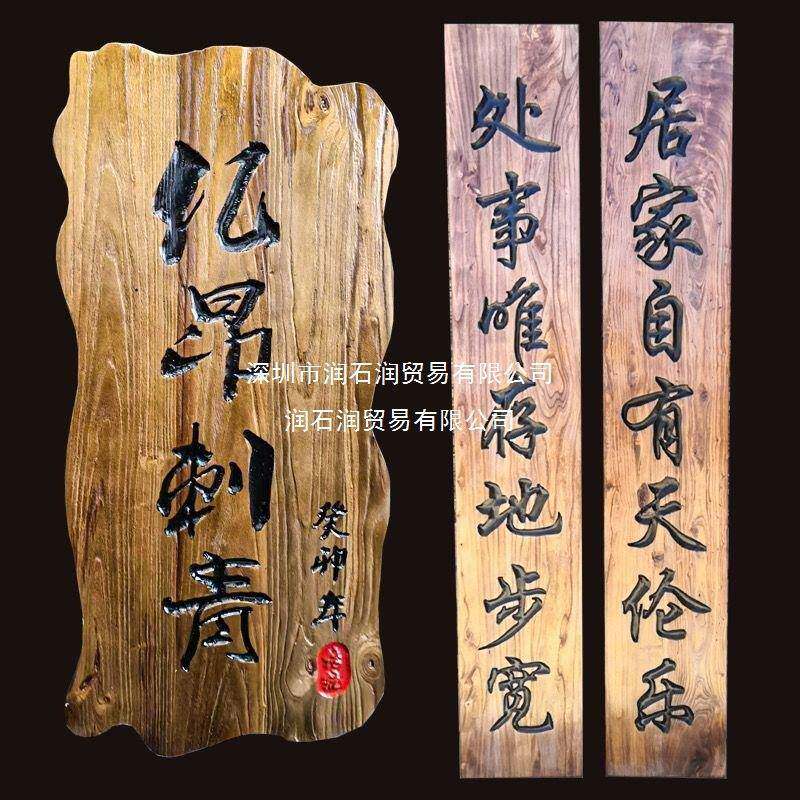 亿昂刺青
癸卯年
居家自有天伦乐
处事唯存地步宽
深圳市润石润贸易有限公司
润石润贸易有限公司